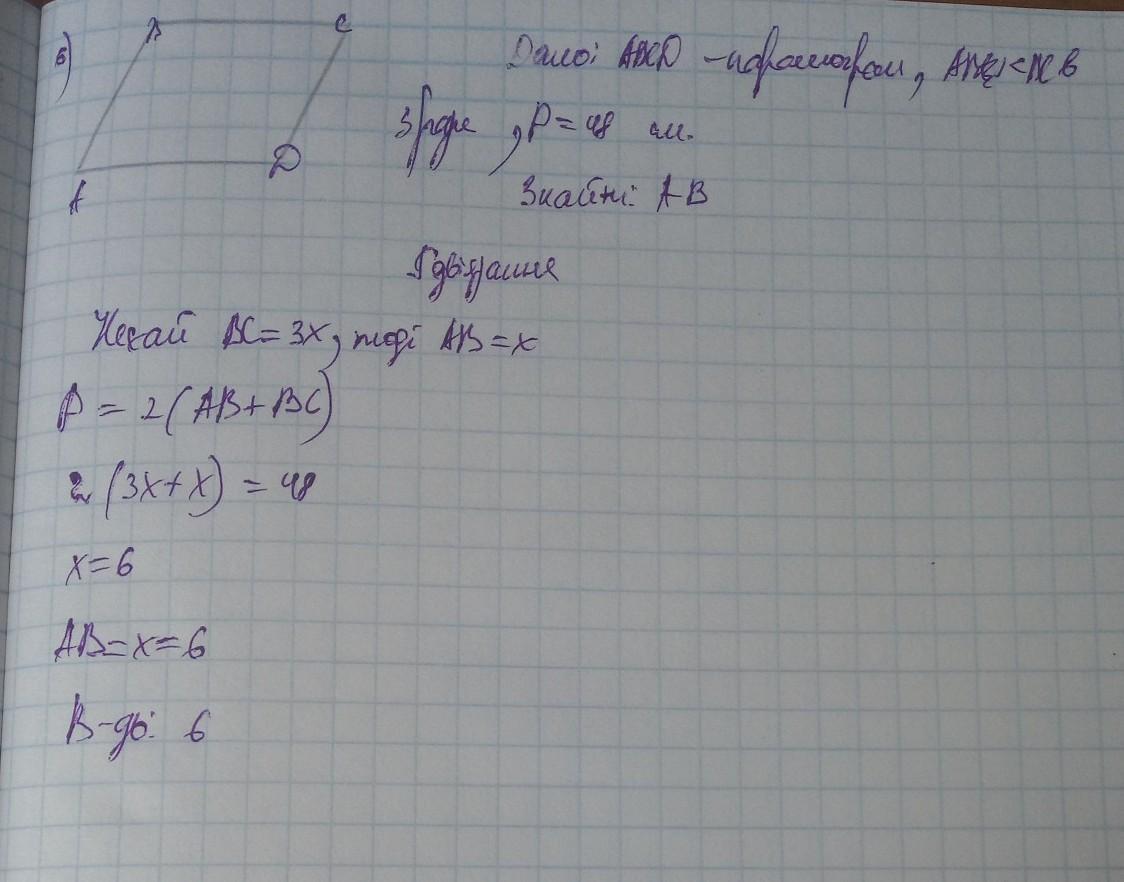 6)
B C
A D
Дано: ABCD - паралограм, AB < BC в
3 рази, P = 48 см.
Знайти: AB
Нехай BC = 3x, тоді AB = x
P = 2(AB + BC)
2(3x + x) = 48
x = 6
AB = x = 6
В-дь: 6